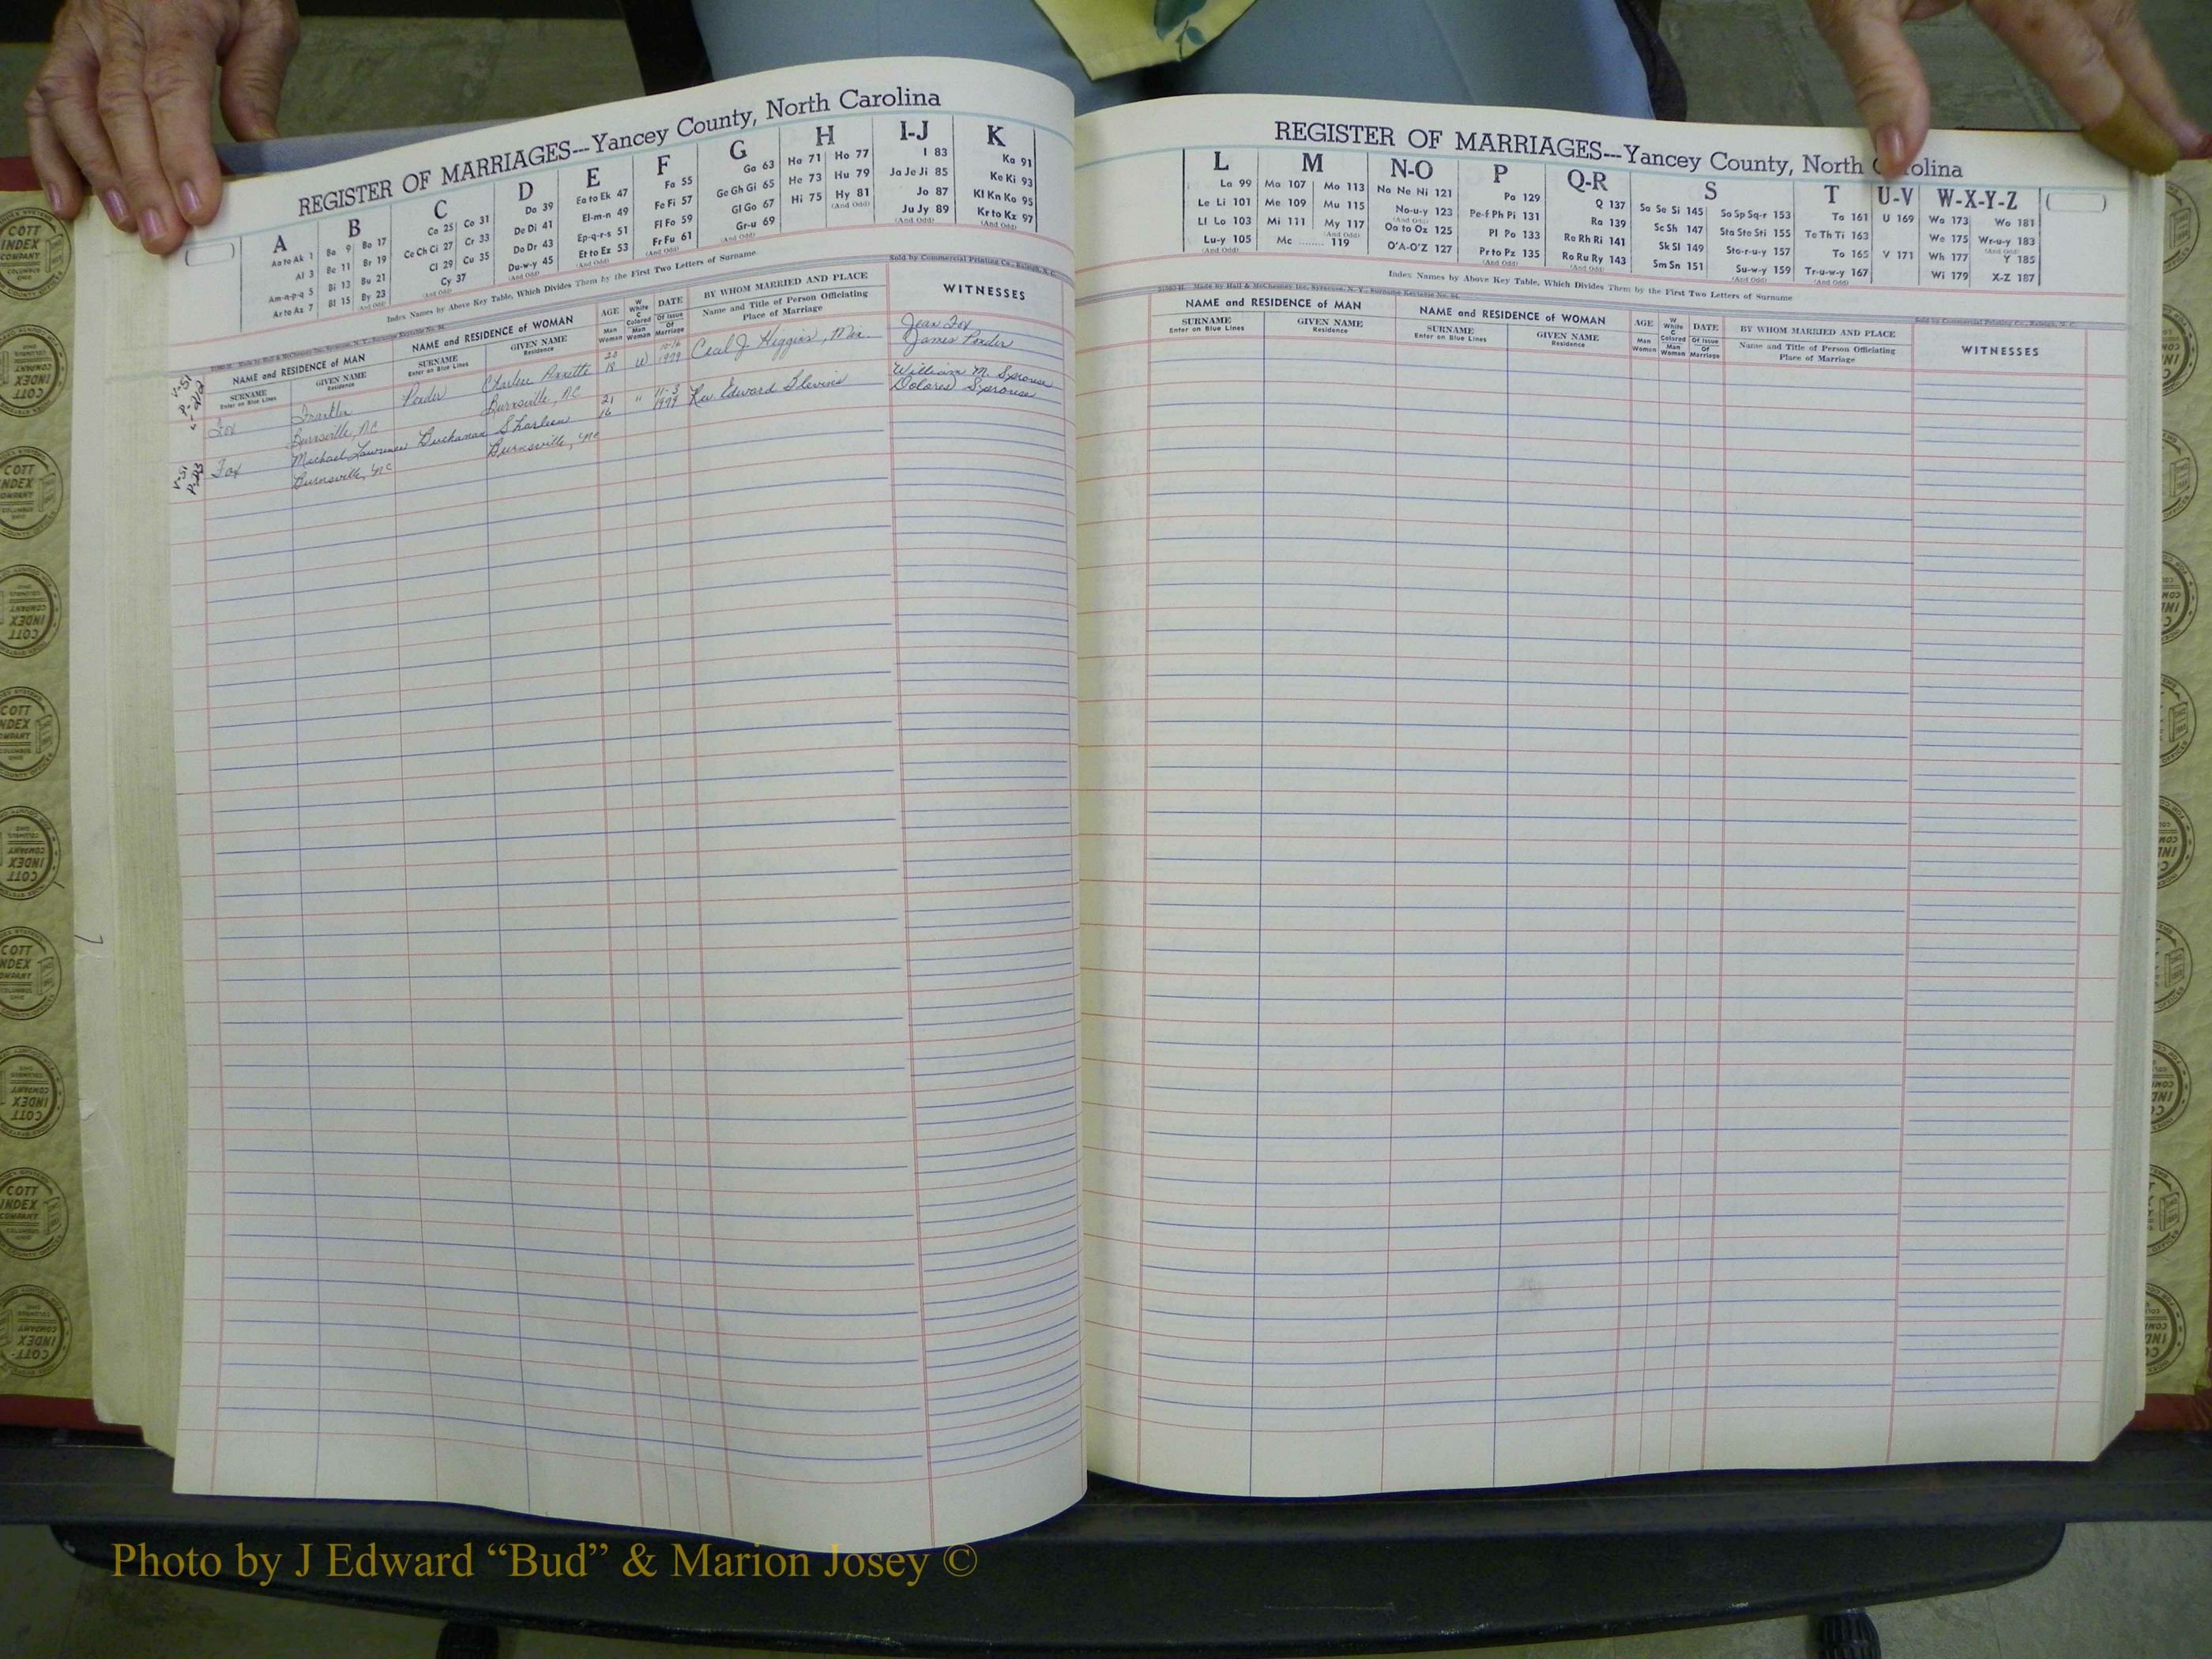 REGISTER OF MARRIAGES---Yancey County, North Carolina
A
Aa to Ak 1
Al 3
Am-n-p-q 5
Ar to Az 7
B
Ba 9 Bo 17
Be 11 Br 19
Bi 13 Bu 21
Bl 15 By 23
(And Odd)
C
Ca 25 Co 31
Ce Ch Ci 27 Cr 33
Cl 29 Cu 35
(And Odd) Cy 37
D
Da 39
De Di 41
Do Dr 43
Du-w-y 45
(And Odd)
E
Ea to Ek 47
El-m-n 49
Ep-q-r-s 51
Et to Ez 53
(And Odd)
F
Fa 55
Fe Fi 57
Fl Fo 59
Fr Fu 61
(And Odd)
G
Ga 63
Ge Gh Gi 65
Gl Go 67
Gr-u 69
(And Odd)
H
Ha 71 Ho 77
He 73 Hu 79
Hi 75 Hy 81
(And Odd)
I-J
I 83
Ja Je Ji 85
Jo 87
Ju Jy 89
(And Odd)
K
Ka 91
Ke Ki 93
Kl Kn Ko 95
Kr to Kz 97
(And Odd)
Index Names by Above Key Table, Which Divides Them by the First Two Letters of Surname
Sold by Commercial Printing Co., Raleigh, N. C.
NAME and RESIDENCE of MAN
SURNAME
Enter on Blue Lines
GIVEN NAME
Residence
NAME and RESIDENCE of WOMAN
SURNAME
Enter on Blue Lines
GIVEN NAME
Residence
AGE
Man
Woman
W
White
C
Colored
Man
Woman
DATE
Of Issue
Of
Marriage
BY WHOM MARRIED AND PLACE
Name and Title of Person Officiating
Place of Marriage
WITNESSES
V-51
Fox Franklin Ponder Charlene Annette 20 W 10-16 Cecil J. Higgins, Min. Jean Fox
Burnsville, NC Burnsville, NC 18 1979 James Ponder
V-51
Fox Michael Lawrence Buchanan Sharleen 21 " 11-3 Rev. Edward Blevins William M. Sprouse
Burnsville, NC Burnsville, NC 16 1979 Dolores Sprouse
REGISTER OF MARRIAGES---Yancey County, North Carolina
L
La 99
Le Li 101
Ll Lo 103
Lu-y 105
(And Odd)
M
Ma 107 Mo 113
Me 109 Mu 115
Mi 111 My 117
(And Odd)
Mc ........ 119
N-O
Na Ne Ni 121
No-u-y 123
(And Odd)
Oa to Oz 125
O'A-O'Z 127
P
Pa 129
Pe-f Ph Pi 131
Pl Po 133
Pr to Pz 135
(And Odd)
Q-R
Q 137
Ra 139
Re Rh Ri 141
Ro Ru Ry 143
(And Odd)
S
Sa Se Si 145 So Sp Sq-r 153
Sc Sh 147 Sta Ste Sti 155
Sk Sl 149 Sto-r-u-y 157
Sm Sn 151 Su-w-y 159
(And Odd)
T
Ta 161
Te Th Ti 163
To 165
Tr-u-w-y 167
(And Odd)
U-V
U 169
V 171
W-X-Y-Z
Wa 173 Wo 181
We 175 Wr-u-y 183
(And Odd)
Wh 177 Y 185
Wi 179 X-Z 187
Index Names by Above Key Table, Which Divides Them by the First Two Letters of Surname
21080-H Made by Hall & McChesney Inc. Syracuse, N. Y., Surname Keytable No. 94.
Sold by Commercial Printing Co., Raleigh, N. C.
NAME and RESIDENCE of MAN
SURNAME
Enter on Blue Lines
GIVEN NAME
Residence
NAME and RESIDENCE of WOMAN
SURNAME
Enter on Blue Lines
GIVEN NAME
Residence
AGE
Man
Woman
W
White
C
Colored
Man
Woman
DATE
Of Issue
Of
Marriage
BY WHOM MARRIED AND PLACE
Name and Title of Person Officiating
Place of Marriage
WITNESSES
COTT
INDEX
COMPANY
COLUMBUS
OHIO
Photo by J Edward “Bud” & Marion Josey ©